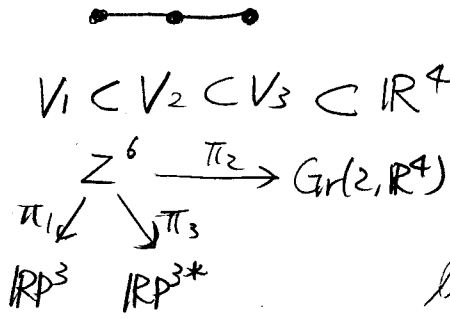 V₁ ⊂ V₂ ⊂ V₃ ⊂ ℝ⁴
Z⁶ π₂ Gr(2, ℝ⁴)
π₁ π₃
ℝP³ ℝP³*